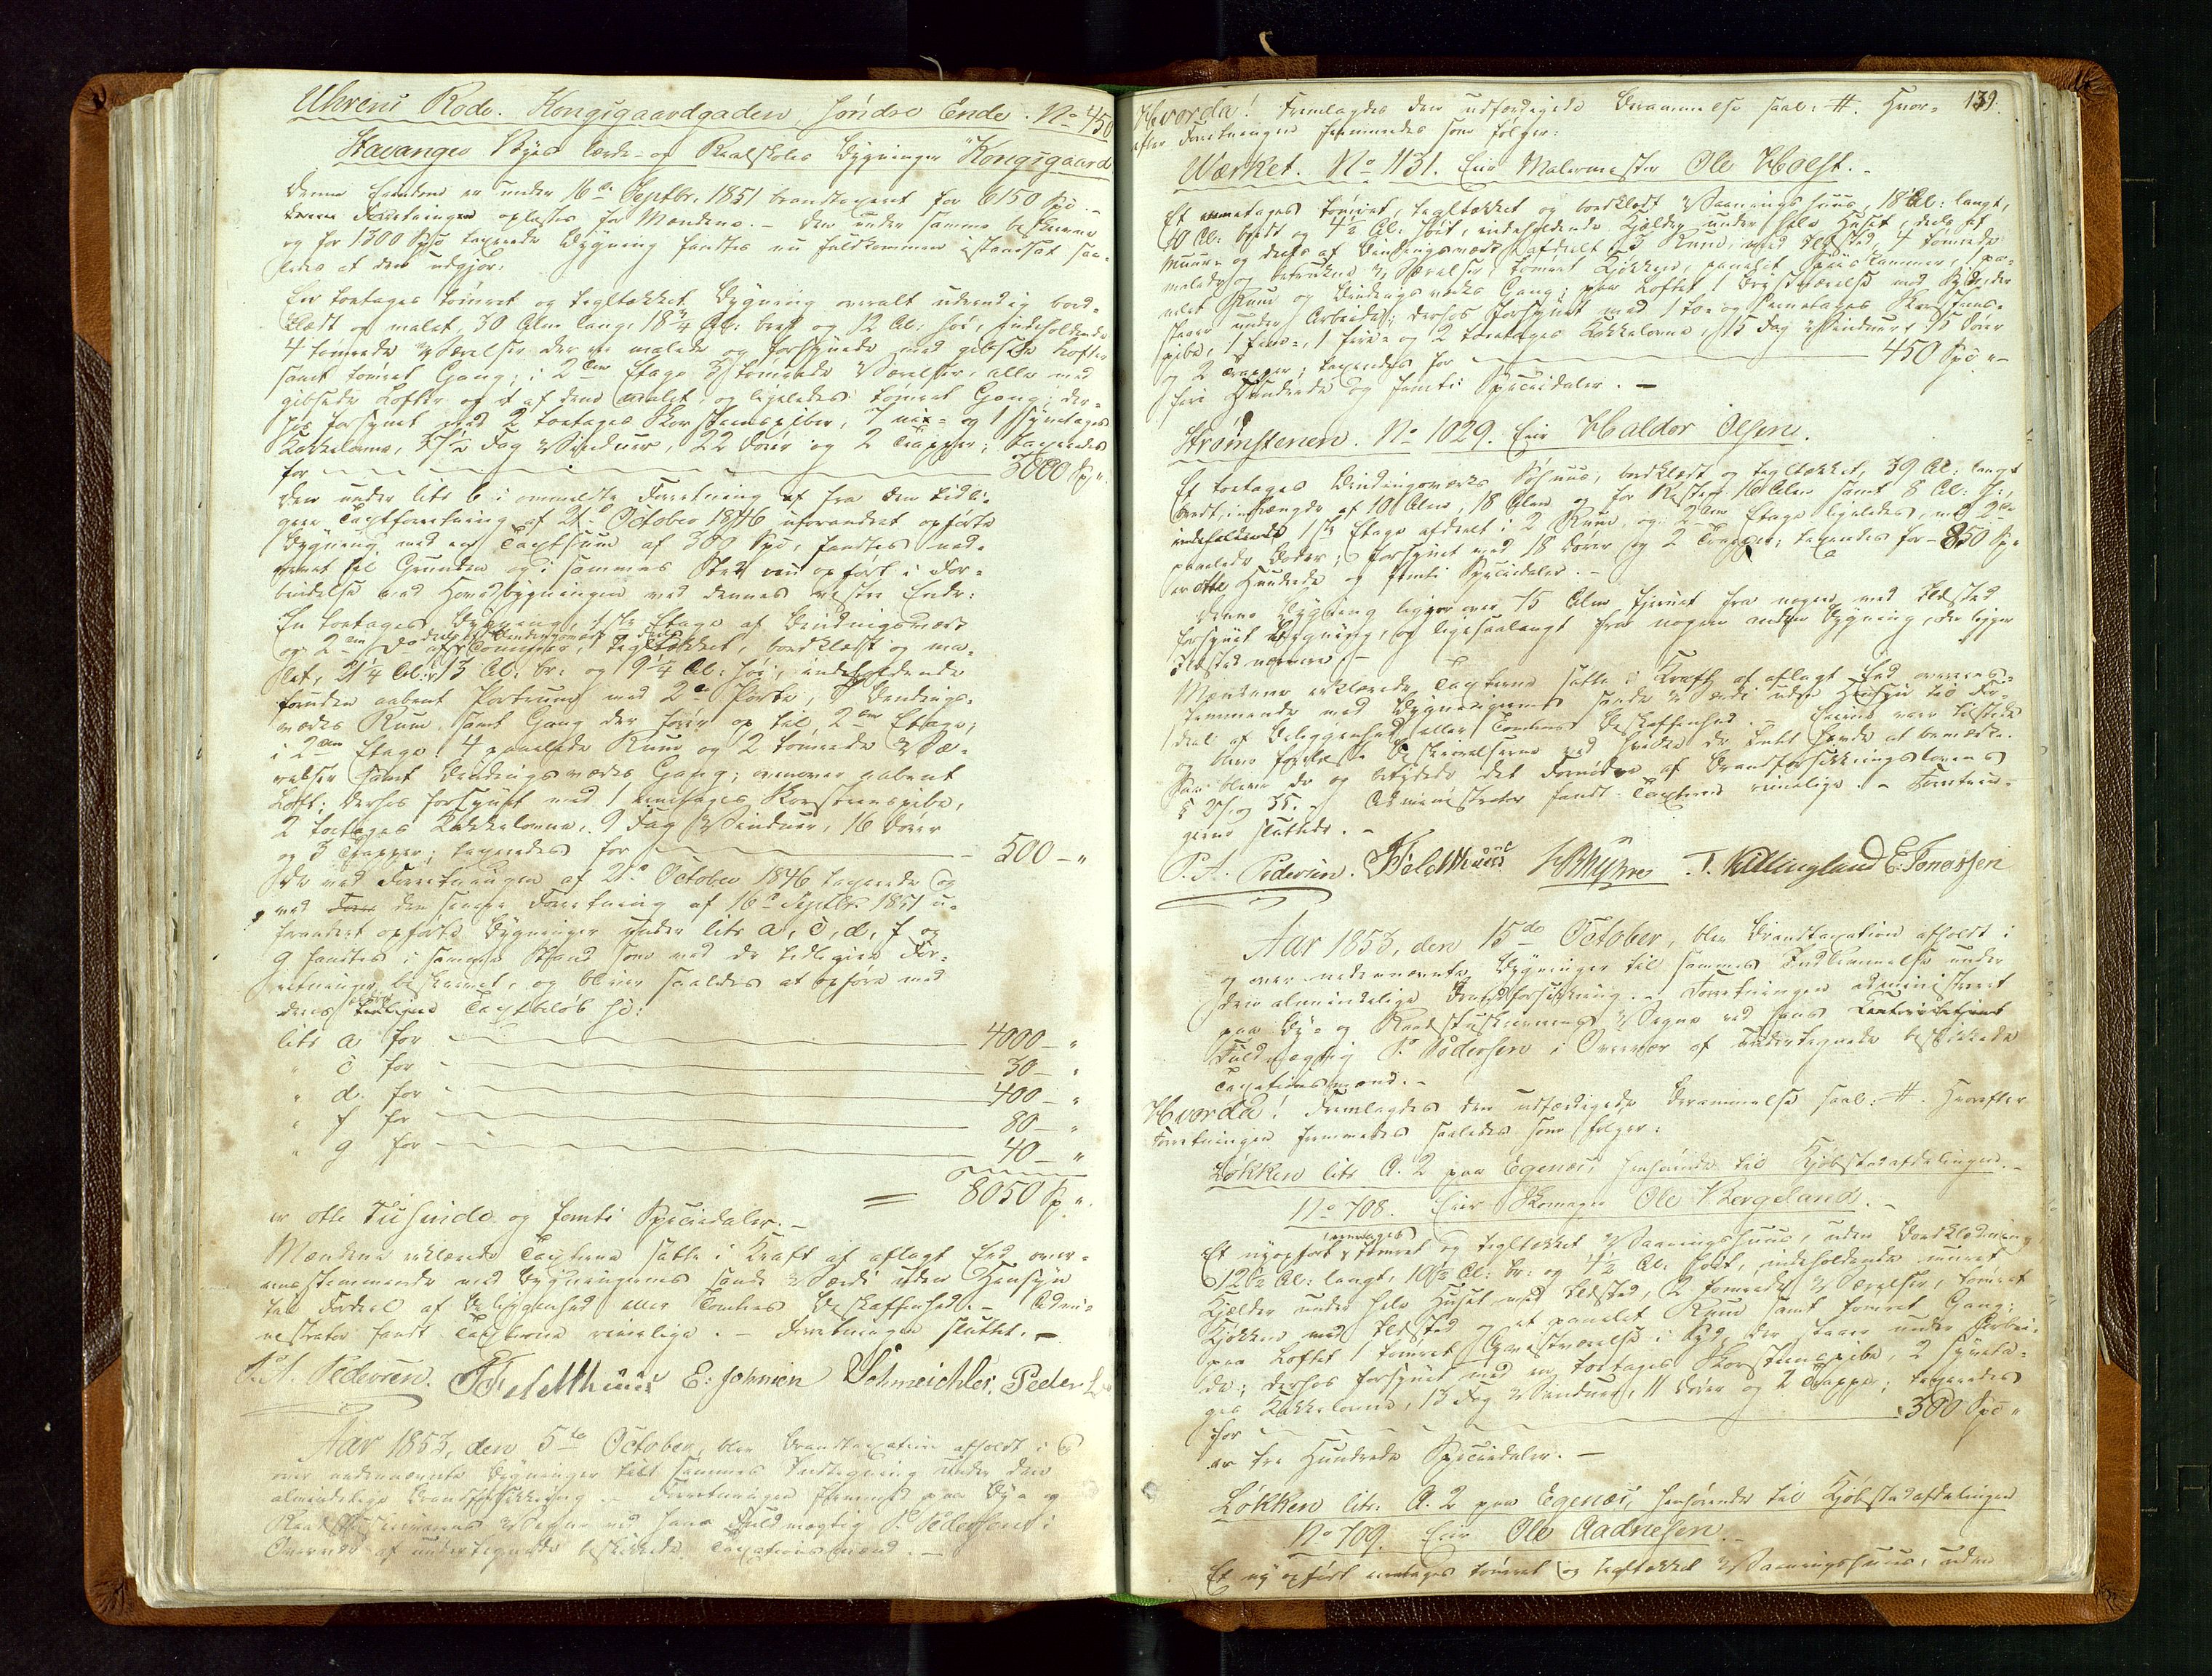 Uhrens Rode. Kongsgaardgaden, søndre Ende. No 450
Stavanger Byes lærde- og Realskoles Bygninger "Kongsgaard
Denne Eiendom er under 16de Septbr. 1851 brandtaxeret for 6150 Spd.
Forretningen oplæstes for Mændene. - Den under samme beskrevne
og for 1300 Spd taxerede Bygning fandtes nu fuldkommen istandsat saa-
ledes at den udgjør:
En toetages tømret og tegltækket Bygning overalt udvendig bord-
klædt og malet, 30 Alen lang, 18 3/4 Al: bred og 12 Al: høi, indeholdende
4 tømrede Værelser der ere malede og forsynede med gibsede Lofter
samt tømret Gang; i 2den Etage 3 tømrede Værelser, alle med
gibsede Lofter og et af dem malet, og ligeledes tømret Gang; der-
hos forsynet med 2 toetages Skorsteenspiber, 7 nie- og 1 syvetages
Kakkelovne, Fag Vinduer, 22 Døre og 2 Trapper; taxeredes
for 3000 Sp "
Den under litr b i ommeldte Forretning af fra den tidli-
gere Taxtforretning af 21de October 1846 uforandret opførte
Bygning med en Taxtsum af 300 Spd, fandtes ned-
revet til Grunden og i sammes Sted nu opført i For-
bindelse med Hovedbygningen ved dennes vestre Ende:
En toetages Bygning, 1ste Etage af Bindingsværk
og 2den Do deels af Bindingsværk deels af Tømmer, tegltækket, bordklædt og ma-
let, 21 1/4 Al: l: 13 Al: br: og 9 1/4 Al: høi, indeholdende
foruden aabent Portrum med 2de Porte, Bindings-
værks Rum samt Gang der fører op til 2den Etage;
i 2den Etage 4 panelede Rum og 2 tømrede Væ-
relser samt Bindingsværks Gang; ovenover aabent
Loft; derhos forsynet med 1 Skorsteenspibe,
2 toetages Kakkelovne, 9 Fag Vinduer, 16 Døre
og 3 Trapper; taxeredes for 500 - "
De ved Forretningen af 21de October 1846 taxerede og
ved den senere Forretning af 16de Septbr. 1851 u-
forandret opførte Bygninger under litr a, c, d, f og
g fandtes i samme Stand som ved de tidligere For-
retninger beskrevet, og bliver saaledes at opføre med
deres Taxtbeløb so:
litr a. for 4000 - "
" c for 30 - "
" d. for 400 - "
" f for 80 - "
" g for 40 - "
= 8050 Sp ".
er otte Tusinde og femti Speciedaler. -
Mændene erklærede Taxterne satte i Kraft af aflagt Eed over-
eensstemmende med Bygningernes sande Værdi uden Hensyn
til Fordeel af Beliggenhed eller Tomtens Beskaffenhed. - Admi-
nistrator fandt Taxterne rimelige. - Forretningen sluttet. -
P. A. Pedersen. Feldthuus E: Johnsen Schmeichler. Peder
Aar 1853, den 5te October, blev Brandtaxation afholdt i og
over nedennævnte Bygninger til sammes Indtegning under den
almindelige Brandforsikring. - Forretningen fremmed paa By- og
Raadstueskriverens Vegne ved hans Fuldmægtig P. Pedersen i
Overvær af undertegnede beskikkede Taxationsmænd. -
139.
Hvorda! Fremlagdes den udfærdigede Berammelse saal: #. Hvor-
efter Forretningen fremmedes som følger:
Værket. No 1131. Eier Malermester Ole Holst. -
Et eenetages tømret, tegltækket og bordklædt Vaaningshuus, 18 Al: langt,
10 Al: bredt og 4 1/2 Al: høit, indeholdende Kjelder under hele Huset, deels af
Muur og deels af Bindingsværk afdeelt i 3 Rum, med Ildsted, 4 tømrede
malede og betrukne Værelser, tømret Kjøkken, panelet Spiiskammer, pa-
nelet Rum og Bindingsværks Gang; paa Loftet 1 Qvistværelse mod Syd, der
staaer under Arbeide; derhos forsynet med 1 toe- og eenetages Skorsteens-
pibe, 1 fem-, 1 fire- og 2 toetages Kakkelovne, 15 Fag Vinduer, 15 Døre
og 2 Trapper; taxeredes for 450 Spd "-
fire Hundrede og femti Speciedaler. -
Strømstenen. No 1029. Eier Haldor Olsen.
Et toetages Bindingsværks Søhuus, bordklædt og tegltækket, 39 Al: langt
bredt, i Længde af 10 Alen, 18 Alen og for Resten 16 Alen samt 8 Al: h:,
indeholdende 1ste Etage afdeelt i 2 Rum, og 2den Etage ligeledes, med 2de
panelede Boder; forsynet med 18 Døre og 2 Trapper; taxeredes for - 850 Spd
er otte Hundrede og femti Speciedaler. -
Denne Bygning ligger over 15 Alen fjernet fra nogen med Ildsted
forsynet Bygning, og ligesaalangt fra nogen anden Bygning, der ligger
Ildsted nærmere. -
Mændene erklærede Taxterne satte i Kraft af aflagt Eed overeens-
stemmende med Bygningernes sande Værdi uden Hensyn til For-
deel af Beliggenhed eller Tomtens Beskaffenhed. - Eierne vare tilstede
og blev forelæst Beskrivelserne ved hvilke de Intet havde at bemærke.
blev de og betydede det Fornødne af Brandforsikkringslovens
§ 25 og 35. - Administrator fandt Taxterne rimelige. - Forretnin-
gerne sluttede. -
P. A. Pedersen. Feldthuus T. Killingland E. Tonassen
Aar 1853, den 15de October, blev Brandtaxation afholdt i
og over nedennævnte Bygninger til sammes Indlemmelse under
den almindelige Brandforsikkring. - Forretningen administreret
paa By- og Raadstueskriverens Vegne ved hans
Fuldmægtig P. Pedersen i Overvær af undertegnede beskikkede
Taxationsmænd. -
Hvorda! Fremlagdes den udfærdigede Berammelse saal: #. Hvorefter
Forretningen fremmedes saaledes som følger:
Løkken litr A. 2 paa Egenæs, henhørende til Kjøbstadafdelingen. -
No 708. Eier Skomager Ole Bergeland. -
Et nyopført eenetages tømret og tegltækket Vaaningshuus, uden Bordklædning,
12 1/2 Al: langt, 10 1/2 Al: br: og 4 1/2 Al: høit, indeholdende muret
Kjælder under hele Huset med Ildsted, 2 tømrede Værelser, tømret
Kjøkken med Ildsted og et panelet Rum samt tømret Gang;
paa Loftet 1 tømret Qvistværelse i Syd, der staaer under Arbei-
de; derhos forsynet med en toetages Skorsteenspibe, 2 syveta-
ges Kakkelovne, 13 Fag Vinduer, 11 Døre og 2 Trapper; taxeredes
for 300 Spd "
er tre Hundrede Speciedaler. -
Løkken litr. A. 2 paa Egenæs, henhørende til Kjøbstadafdelingen
No 709. Eier Ole Aadnesen. -
Et nyopført eenetages tømret og tegltækket Vaaningshuus, uden